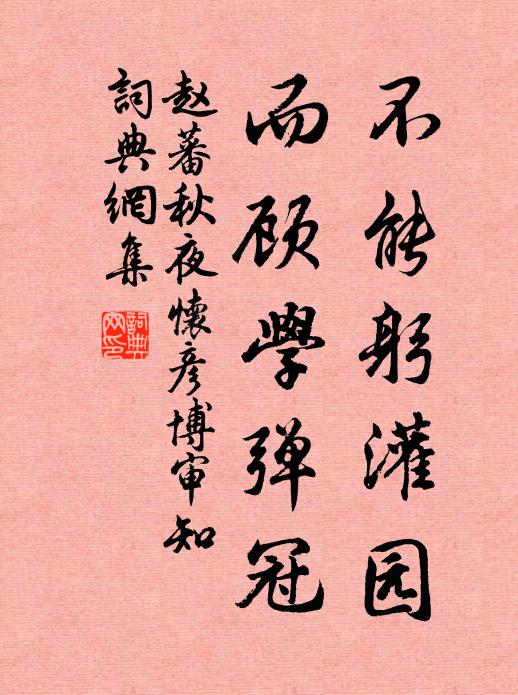 不能躬灌园
而顾學弹冠
赵蕃秋夜懷彦博审知
詞典網集
詞典网印